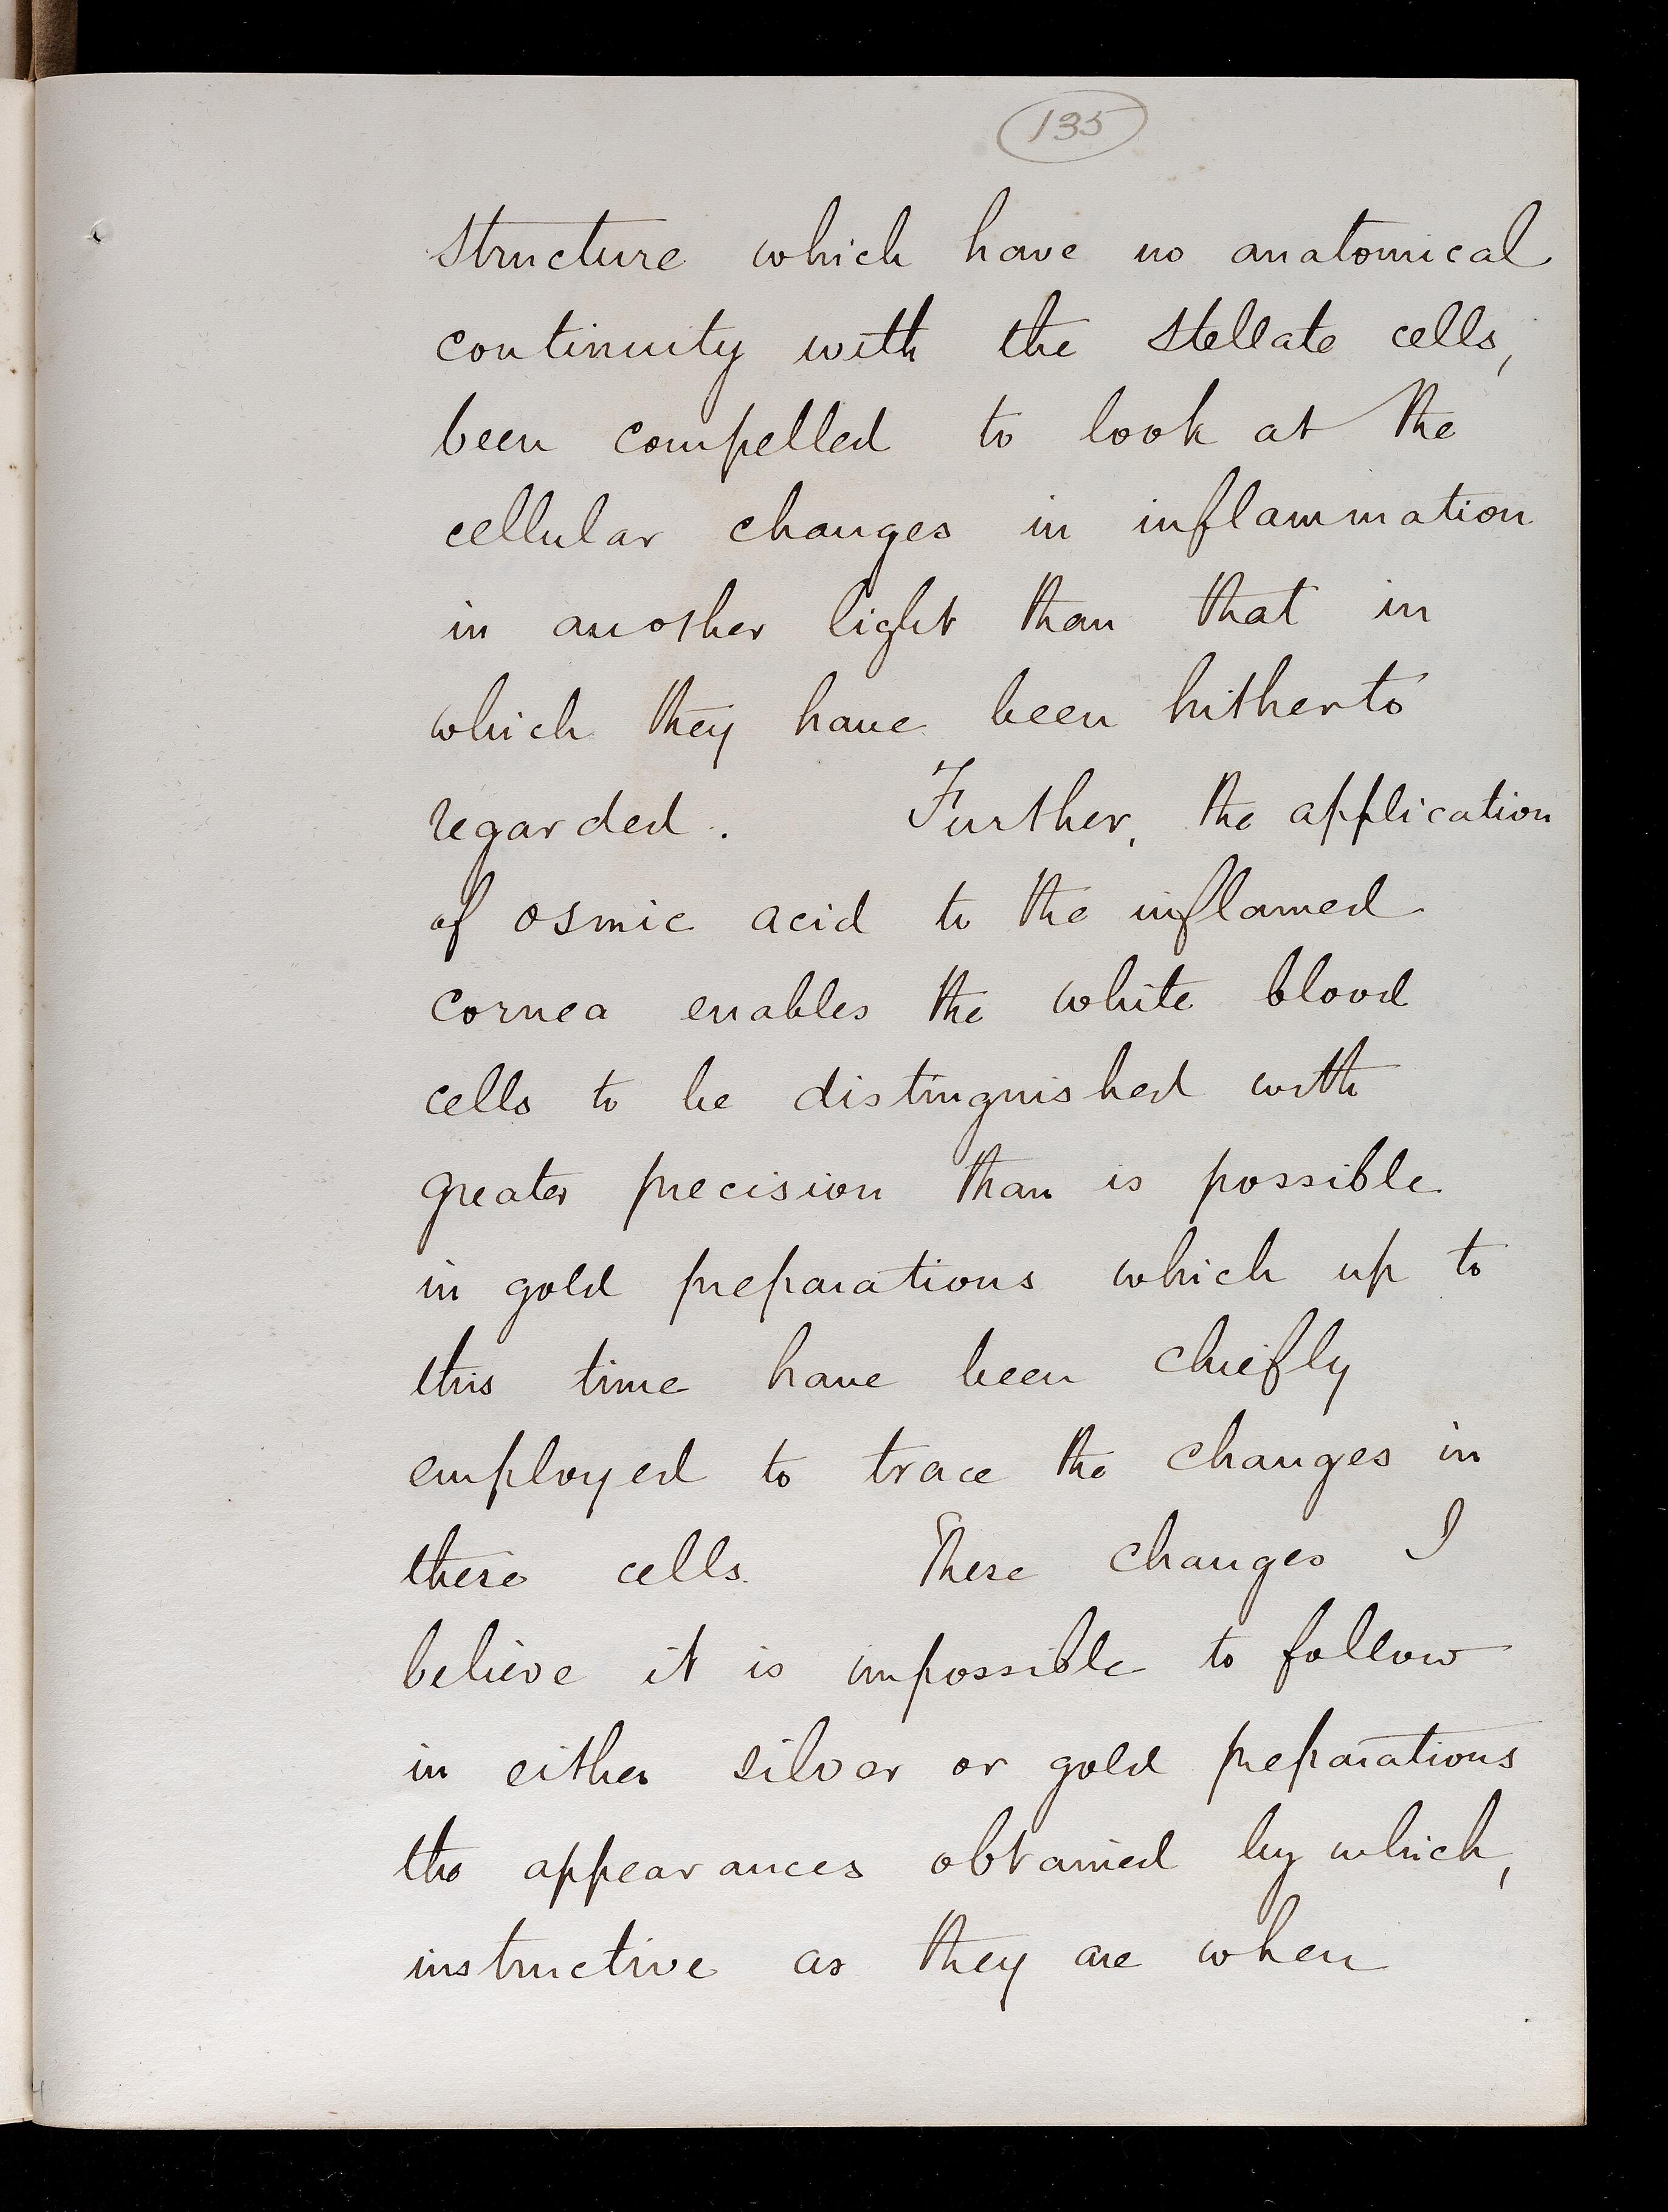 135
structure which have no anatomical
continuity with the stellate cells,
been compelled to look at the
cellular changes in inflammation
in another light than that in
which they have been hitherto
regarded. Further, the application
of osmic acid to the inflamed
cornea enables the white blood
cells to be distinguished with
greater precision than is possible
in gold preparations which up to
this time have been chiefly
employed to trace the changes in
these cells. These changes I
believe it is impossible to follow
in either silver or gold preparations
the appearances obtained by which,
instructive as they are when